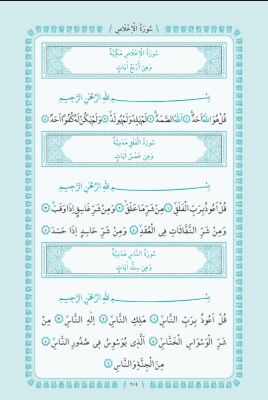 سُورَةُ الْإِخْلَاصِ
سُورَةُ الْإِخْلَاصِ مَكِّيَّةٌ
وَهِىَ أَرْبَعُ آيَاتٍ
بِسْمِ اللهِ الرَّحْمٰنِ الرَّحِيمِ
قُلْ هُوَ اللهُ أَحَدٌ ۝ اَللهُ الصَّمَدُ ۝ لَمْ يَلِدْ وَلَمْ يُولَدْ ۝ وَلَمْ يَكُنْ لَهُ كُفُوًا أَحَدٌ ۝
سُورَةُ الْفَلَقِ مَدَنِيَّةٌ
وَهِىَ خَمْسُ آيَاتٍ
بِسْمِ اللهِ الرَّحْمٰنِ الرَّحِيمِ
قُلْ أَعُوذُ بِرَبِّ الْفَلَقِ ۝ مِنْ شَرِّ مَا خَلَقَ ۝ وَمِنْ شَرِّ غَاسِقٍ إِذَا وَقَبَ ۝
وَمِنْ شَرِّ النَّفَّاثَاتِ فِى الْعُقَدِ ۝ وَمِنْ شَرِّ حَاسِدٍ إِذَا حَسَدَ
سُورَةُ النَّاسِ مَدَنِيَّةٌ
وَهِىَ سِتُّ آيَاتٍ
بِسْمِ اللهِ الرَّحْمٰنِ الرَّحِيمِ
قُلْ أَعُوذُ بِرَبِّ النَّاسِ ۝ مَلِكِ النَّاسِ ۝ إِلٰهِ النَّاسِ ۝ مِنْ
شَرِّ الْوَسْوَاسِ الْخَنَّاسِ ۝ اَلَّذِى يُوَسْوِسُ فِى صُدُورِ النَّاسِ ۝
مِنَ الْجِنَّةِ وَالنَّاسِ ۝
٦٠٤